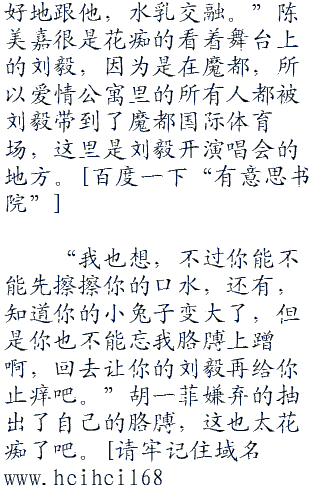 好地跟他，水乳交融。”陈
美嘉很是花痴的看着舞台上
的刘毅，因为是在魔都，所
以爱情公寓里的所有人都被
刘毅带到了魔都国际体育
场，这里是刘毅开演唱会的
地方。[百度一下“有意思书
院”]
“我也想，不过你能不
能先擦擦你的口水，还有，
知道你的小兔子变大了，但
是你也不能忘我胳膊上蹭
啊，回去让你的刘毅再给你
止痒吧。”胡一菲嫌弃的抽
出了自己的胳膊，这也太花
痴了吧。[请牢记住域名
www.hcihci168